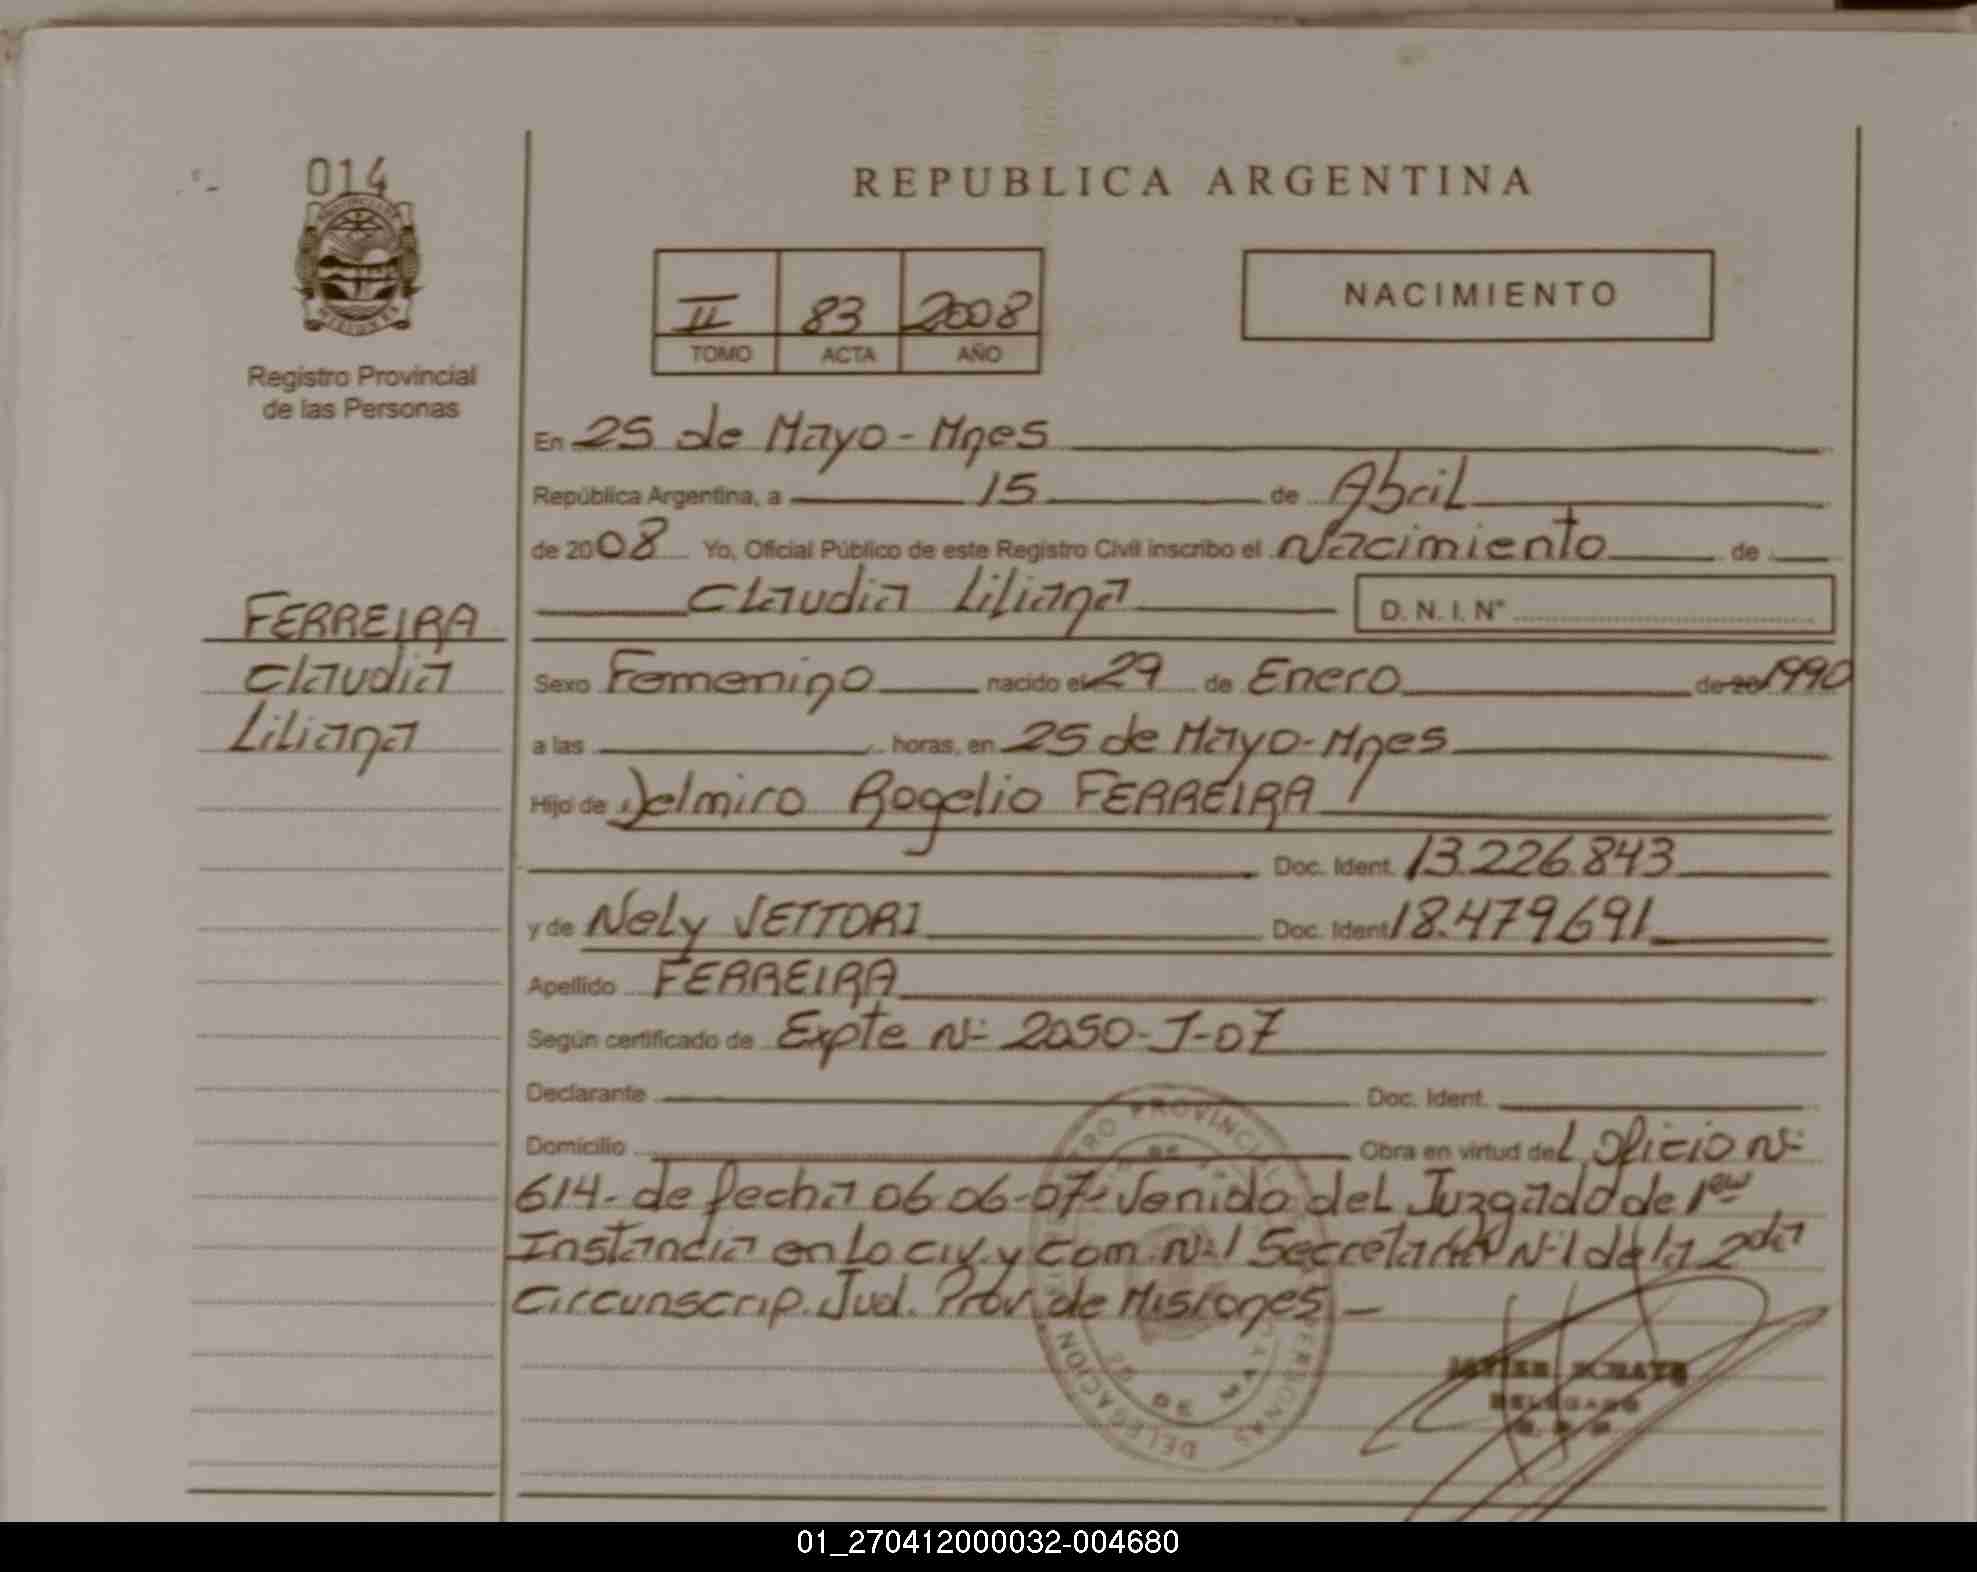 014
REPUBLICA ARGENTINA
II 83 2008
TOMO ACTA AÑO
NACIMIENTO
Registro Provincial
de las Personas
En 25 de Mayo - Mnes
República Argentina, a 15 de Abril
de 2008 Yo, Oficial Público de este Registro Civil inscribo el Nacimiento de
Claudia Liliana D. N. I. N°
FERREIRA
Claudia
Liliana
Sexo Femenino nacido el 29 de Enero de 20 1990
a las horas, en 25 de Mayo - Mnes
Hijo de Delmiro Rogelio FERREIRA
Doc. Ident. 13.226.843
y de Nely VETTORI Doc. Ident. 18.479691
Apellido FERREIRA
Según certificado de Expte N° 2050-J-07
Declarante Doc. Ident.
Domicilio Obra en virtud del Oficio N°
614 - de fecha 06 06-07- Venido del Juzgado de 1era
Instancia en Lo civ. y Com. N° 1 Secretaria N° 1 de la 2da
Circunscrip. Jud. Prov. de Misiones -
PROVINCIAL
PERSONAS
DELEGACION
25 DE MAYO
JAVIER
DELEGADO
01_270412000032-004680